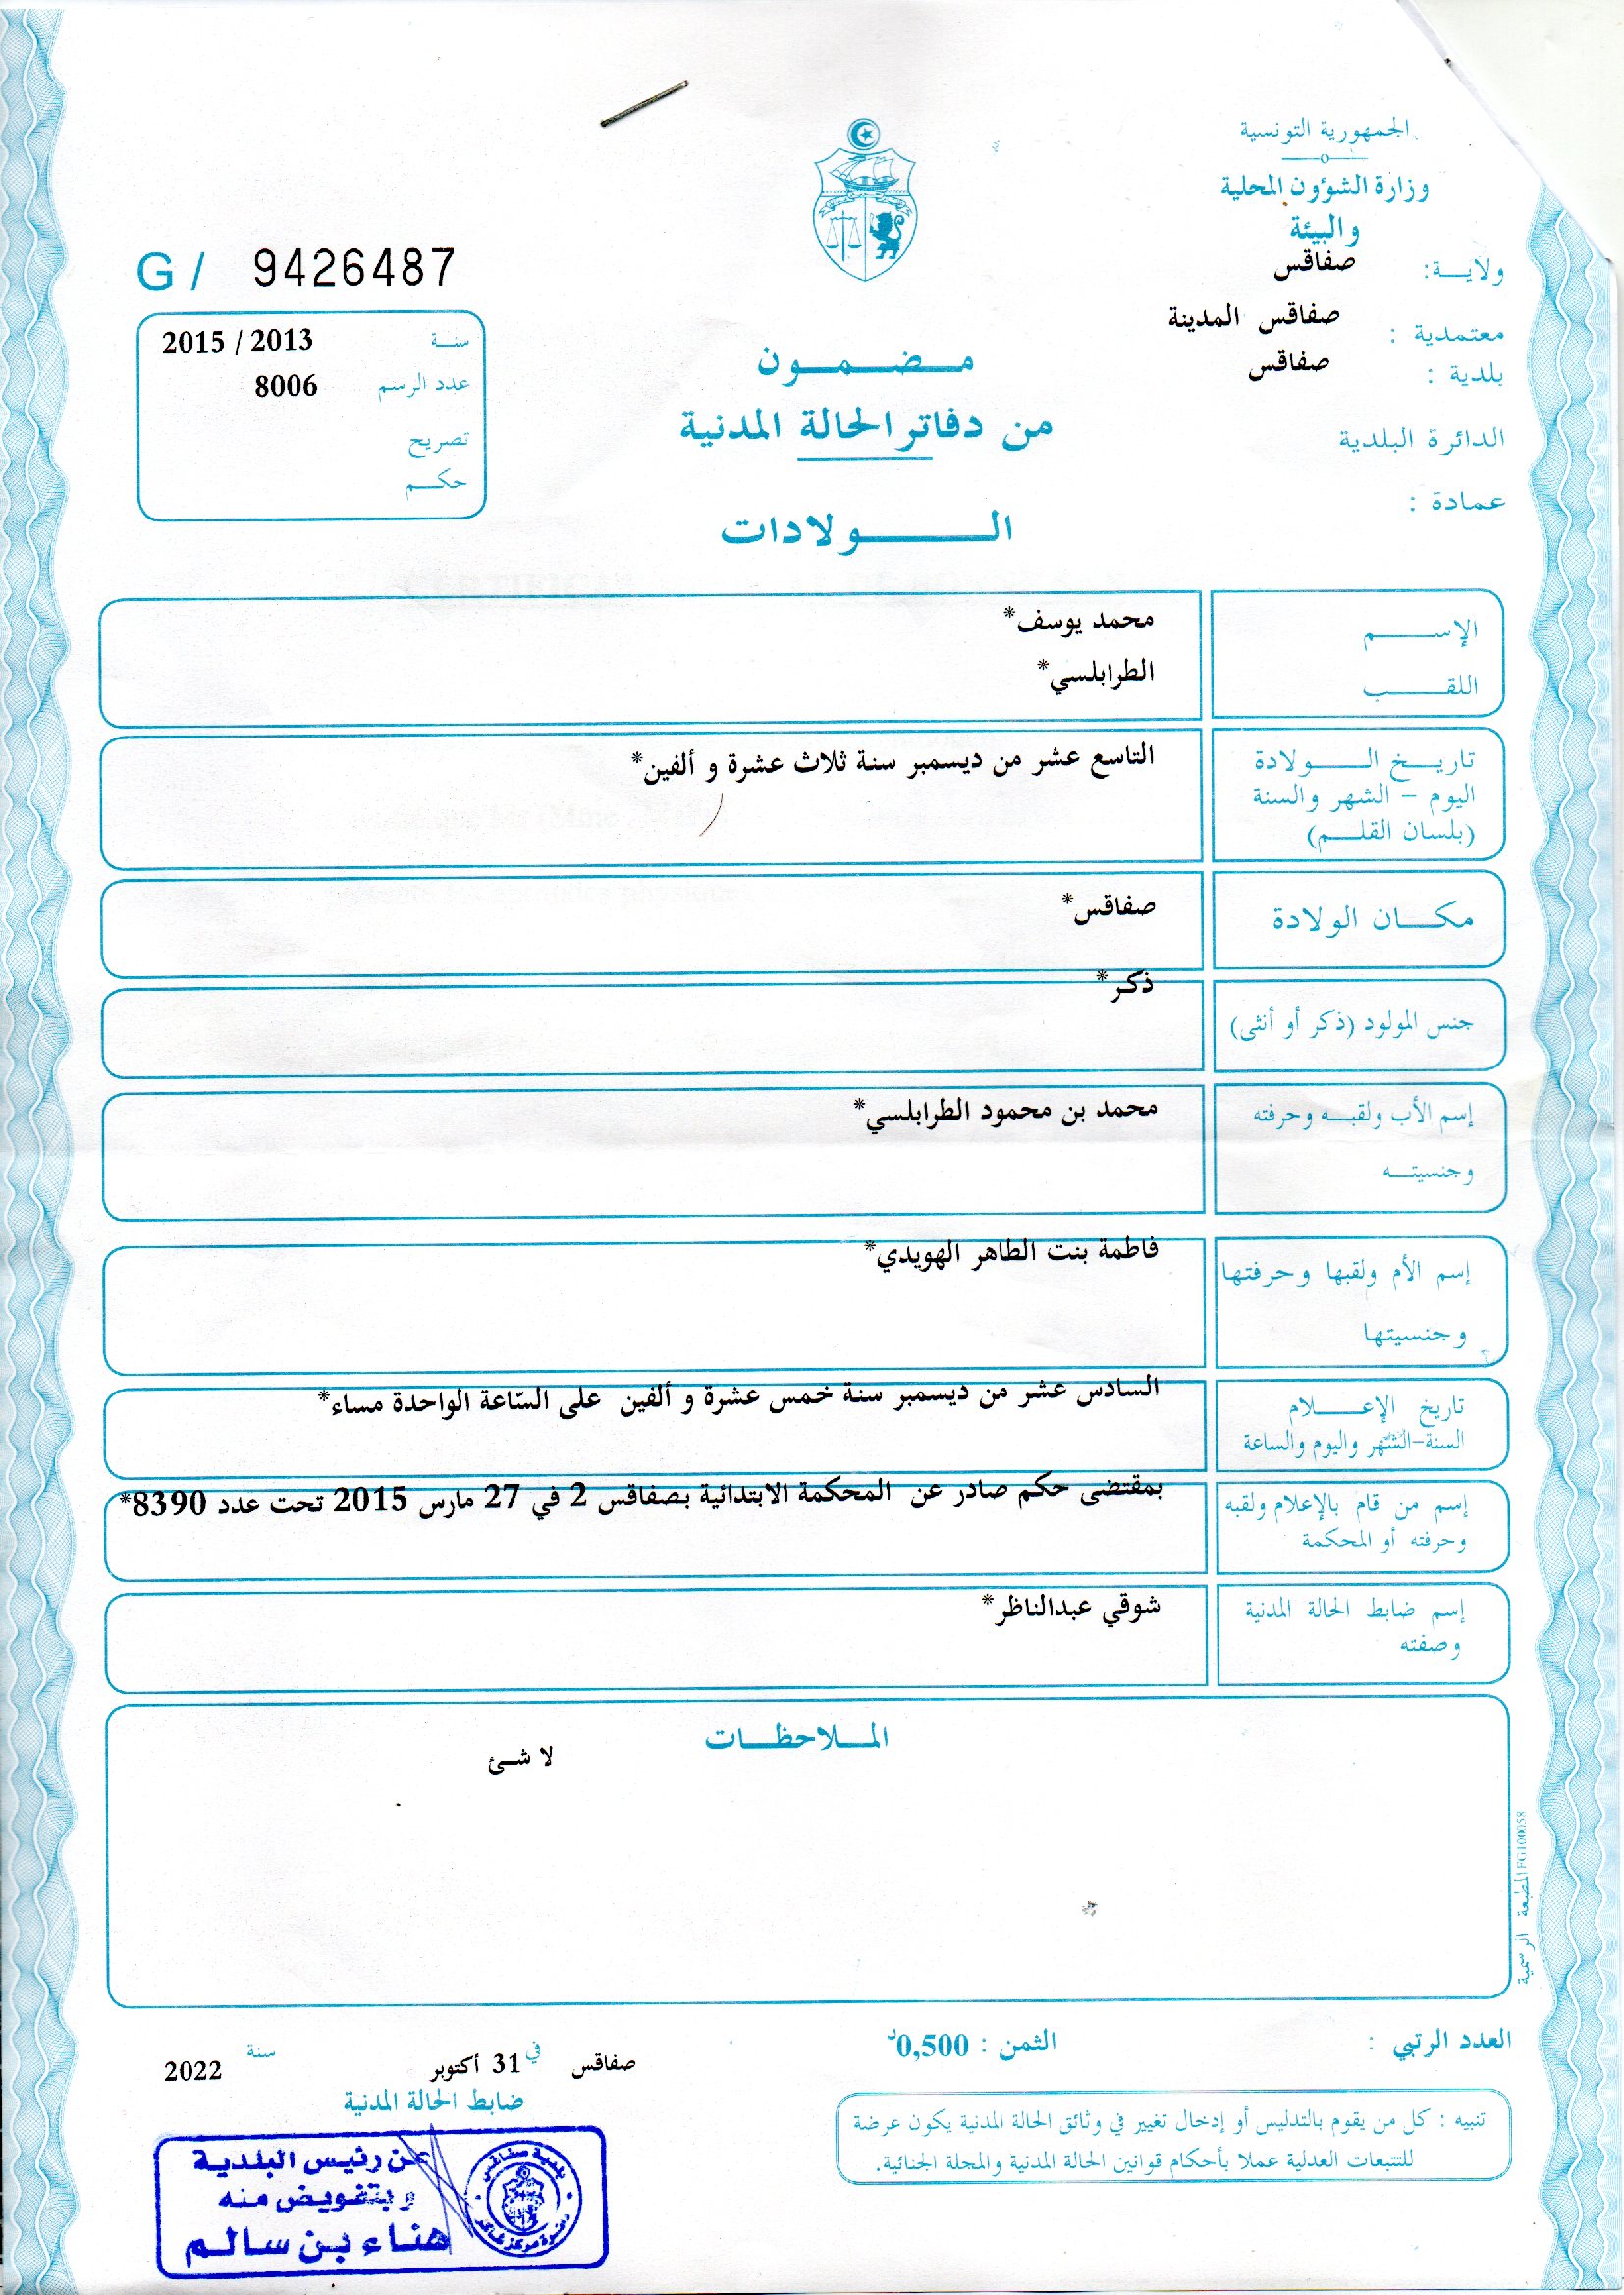 الجمهورية التونسية
وزارة الشؤون المحلية
والبيئة
ولاية: صفاقس
معتمدية : صفاقس المدينة
بلدية : صفاقس
الدائرة البلدية
عمادة :
G / 9426487
سنة 2013 / 2015
عدد الرسم 8006
تصريح
حكم
مضمون
من دفاتر الحالة المدنية
الولادات
الإسم محمد يوسف*
اللقب الطرابلسي*
تاريخ الولادة التاسع عشر من ديسمبر سنة ثلاث عشرة و ألفين*
اليوم - الشهر والسنة
(بلسان القلم)
مكان الولادة صفاقس*
جنس المولود (ذكر أو أنثى) ذكر*
إسم الأب ولقبه وحرفته محمد بن محمود الطرابلسي*
وجنسيته
إسم الأم ولقبها وحرفتها فاطمة بنت الطاهر الهويدي*
وجنسيتها
تاريخ الإعلام السادس عشر من ديسمبر سنة خمس عشرة و ألفين على السّاعة الواحدة مساء*
السنة-الشهر واليوم والساعة
إسم من قام بالإعلام ولقبه بمقتضى حكم صادر عن المحكمة الابتدائية بصفاقس 2 في 27 مارس 2015 تحت عدد 8390*
وحرفته أو المحكمة
إسم ضابط الحالة المدنية شوقي عبدالناظر*
وصفته
الملاحظات
لا شئ
المطبعة الرسمية FG100058
العدد الرتبي :
الثمن : 0,500د
صفاقس في 31 أكتوبر سنة 2022
ضابط الحالة المدنية
تنبيه : كل من يقوم بالتدليس أو إدخال تغيير في وثائق الحالة المدنية يكون عرضة
للتتبعات العدلية عملا بأحكام قوانين الحالة المدنية والمجلة الجنائية.
عن رئيس البلدية
وبتفويض منه
هناء بن سالم
بلدية صفاقس